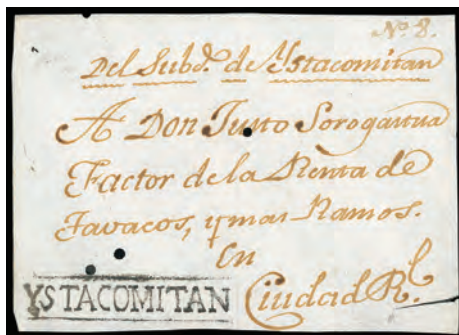 No. 8.
Del Subd.o de Ystacomitan
A Don Justo Sorogastua
Factor de la Renta de
Tavacos, y mas Ramos.
En
Ciudad Rl.
YSTACOMITAN